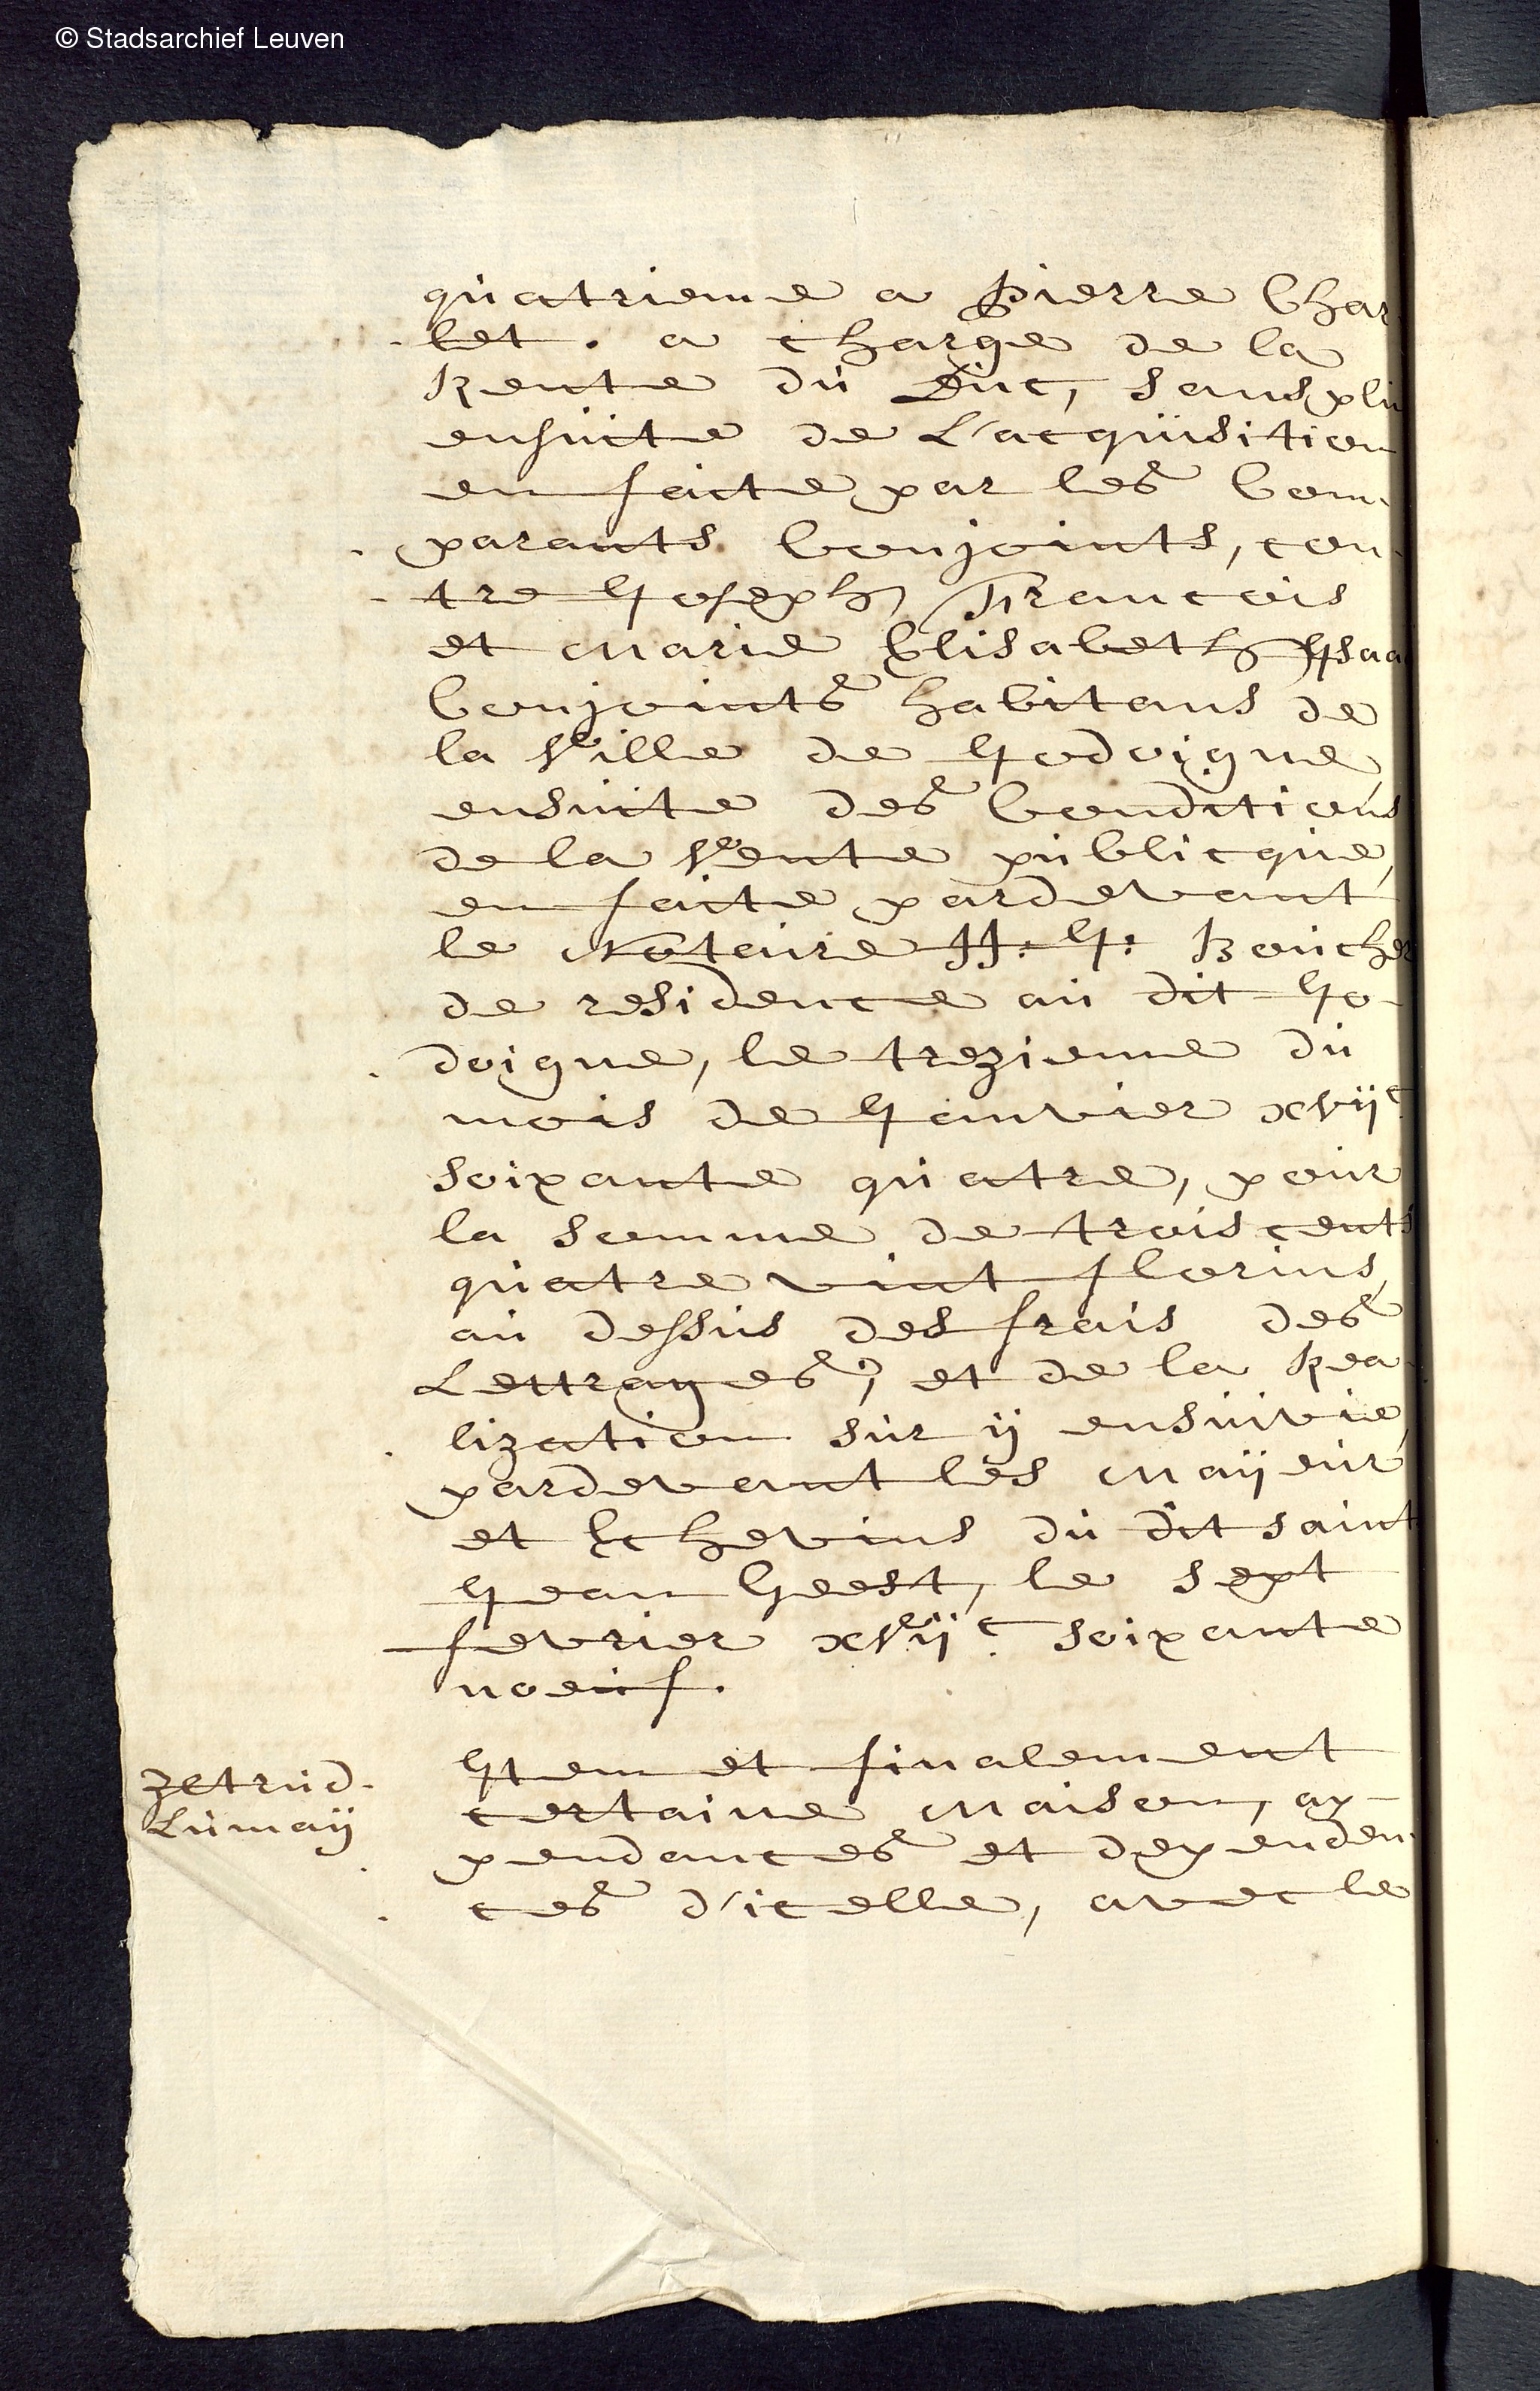 © Stadsarchief Leuven
quatrieme a Pierre Char
let. a charge de la
Rente du Duc, sans plu
ensuite de L'acquisition
en faicte par les Com-
parants Conjoints, con-
tre Joseph Francois
et Marie Elisabeth Isaa
Conjoints habitans de
la Ville de Jodoigne
ensuite des Conditions
de la Vente publicque,
en faicte pardevant
le Notaire H: J: Boucher
de residence au dit Jo-
doigne, le trezieme du
mois de Janvier xvijc
soixante quatre, pour
la somme de trois cents
quatre vint florins,
au dessus des frais des
Lettrages, et de la Rea-
lization sur ij ensuivie
pardevant les Maijeur
et Echevins du dit saint
Jean Geest, le sept
fevrier xvijc. soixante
noeuf.
Zetrud-
Lumaij
Item et finalement
certaine Maison, ap-
pendances et dependen-
ces d'icelle, avec le